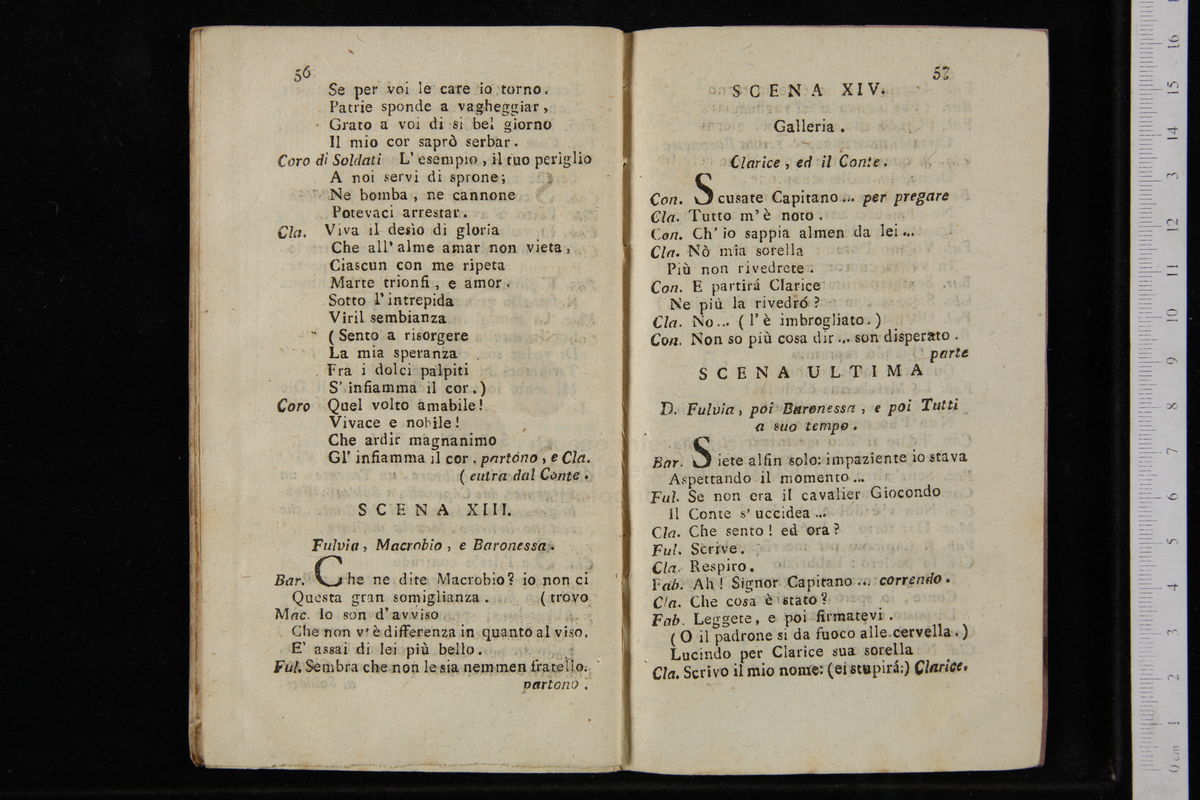 56
Se per voi le care io torno.
Patrie sponde a vagheggiar,
Grato a voi di si bel giorno
Il mio cor saprò serbar.
Coro di Soldati L' esempio, il tuo periglio
A noi servi di sprone;
Ne bomba, ne cannone
Potevaci arrestar.
Cla. Viva il desìo di gloria
Che all' alme amar non vieta,
Ciascun con me ripeta
Marte trionfi, e amor.
Sotto l' intrepida
Viril sembianza
(Sento a risorgere
La mia speranza
Fra i dolci palpiti
S' infiamma il cor.)
Coro Quel volto amabile!
Vivace e nobile!
Che ardir magnanimo
Gl' infiamma il cor. partono, e Cla.
(eutra dal Conte.
SCENA XIII.
Fulvia, Macrobio, e Baronessa.
Bar. Che ne dite Macrobio? io non ci
Questa gran somiglianza. (trovo
Mac. Io son d' avviso
Che non v' è differenza in quanto al viso.
E' assai di lei più bello.
Ful. Sembra che non le sia nemmen fratello.
partono.
57
SCENA XIV.
Galleria.
Clarice, ed il Conte.
Con. Scusate Capitano... per pregare
Cla. Tutto m' è noto.
Con. Ch' io sappia almen da lei...
Cla. Nò mia sorella
Più non rivedrete.
Con. E partirá Clarice
Ne più la rivedró?
Cla. No... (l' è imbrogliato.)
Con. Non so più cosa dir... son disperato.
parte
SCENA ULTIMA
D. Fulvia, poi Baronessa, e poi Tutti
a suo tempo.
Bar. Siete alfin solo: impaziente io stava
Aspettando il momento...
Ful. Se non era il cavalier Giocondo
Il Conte s' uccidea...
Cla. Che sento! ed ora?
Ful. Scrive.
Cla. Respiro.
Fab. Ah! Signor Capitano... correndo.
Cla. Che cosa è stato?
Fab. Leggete, e poi firmatevi.
(O il padrone si da fuoco alle cervella.)
Lucindo per Clarice sua sorella
Cla. Scrivo il mio nome: (ei stupirá:) Clarice.
0 cm 1 2 3 4 5 6 7 8 9 10 11 12 13 14 15 16